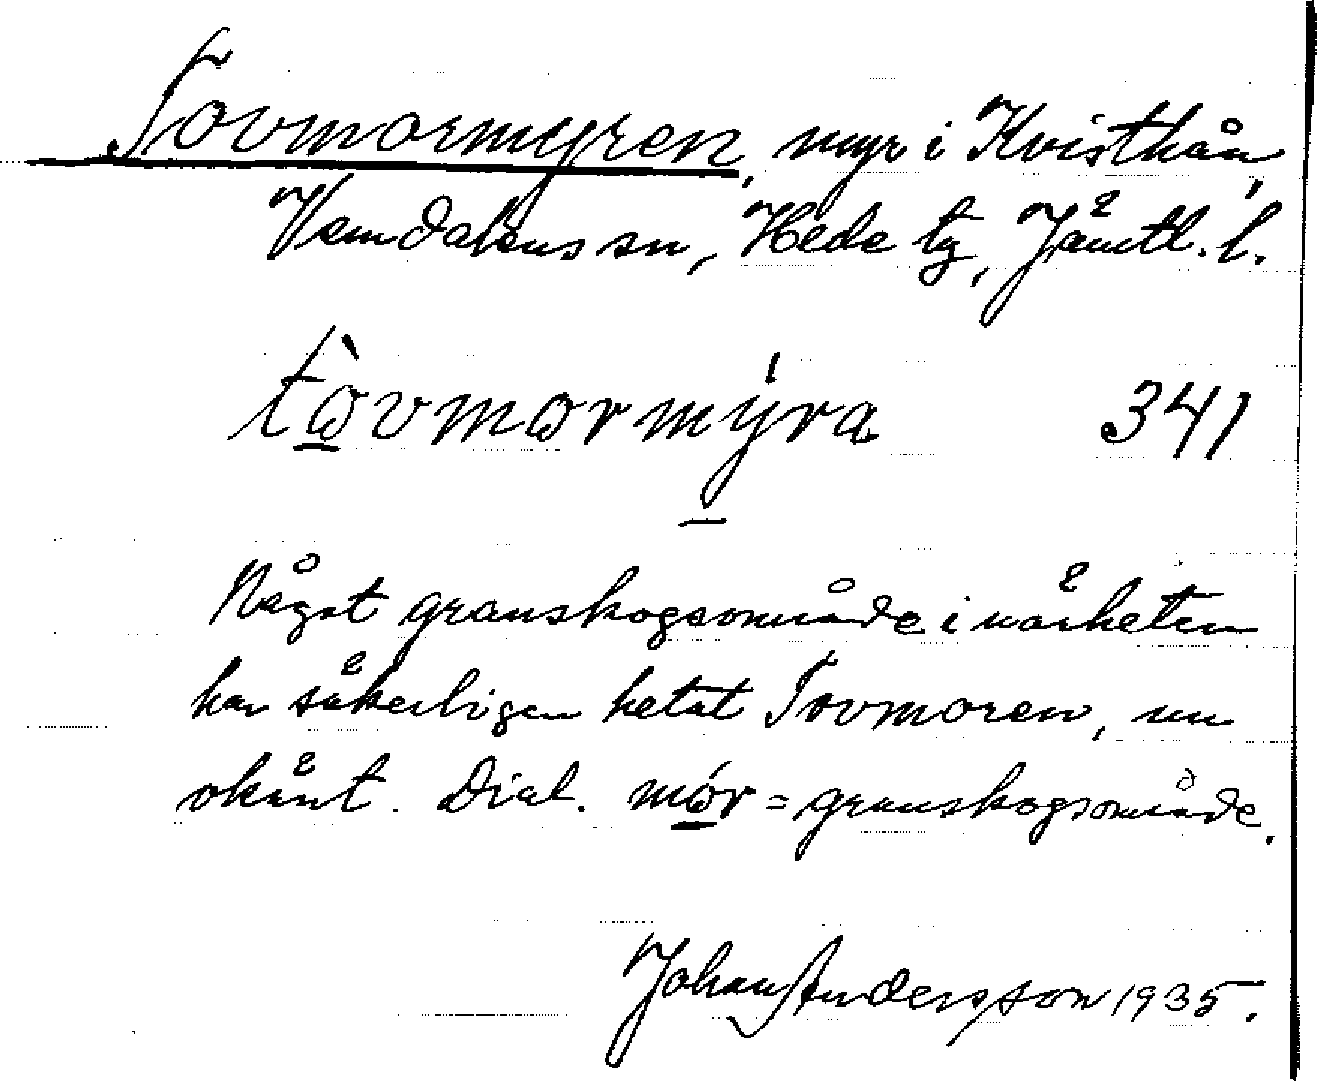 Tovmormyren, myr i Kvisthån,
Vemdalens sn, Hede tg, Jämtl. l.
tòvmormýra 341
Något granskogsområde i närheten
har säkerligen hetat Tovmoren, nu
okänt. Dial. mór = granskogsområde.
Johan Andersson 1935.